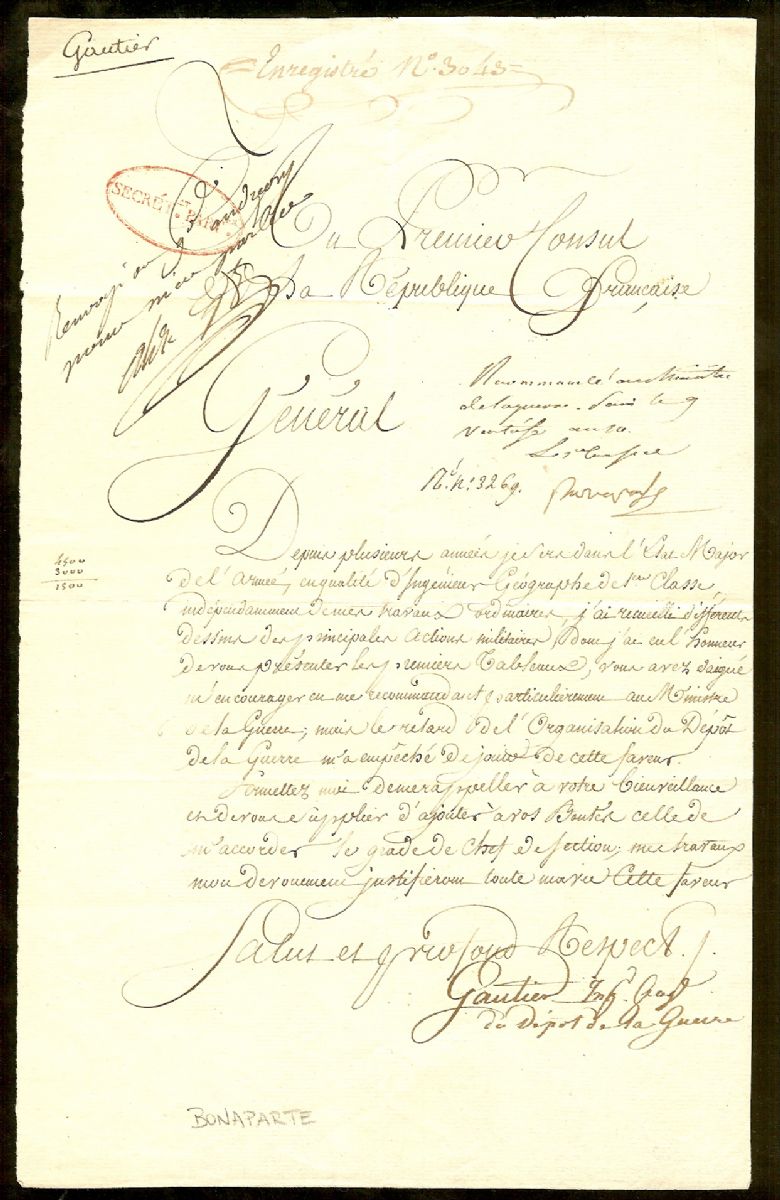 Gautier
Enregistré N.º 3043
SECRÉT.
Renvoyé au Gl. andreossy
pour m'en parler
Au Premier Consul
De La République française
Général
Recommandé au Ministre
de la guerre. Paris le 9
ventôse an 10.
Le 1er Consul
Rt. N.º 3269.
Bonaparte
4500
3000
1500
Depuis plusieurs années je sers dans l'Etat Major
de l'Armée, en qualité d'Ingénieur Géographe de 1ere Classe,
indépendamment de mes travaux ordinaires, j'ai recueilli différents
dessins des principales actions militaires, dont j'ai eu l'honneur
de vous présenter les premiers Tableaux, vous avez daigné
m'encourager en me recommandant particulièrement au Ministre
de la Guerre; mais le retard de l'Organisation du Dépôt
de la Guerre m'a empêché de jouir de cette faveur.
Permettez moi de me rappeller à votre bienveillance
et de vous supplier d'ajouter à vos Bontés celle de
m'accorder le grade de Chef de section; mes travaux
mon dévouement justifieront toute ma vie Cette faveur
Salut et profond Respect.
Gautier Ingr. Geogr.
du Dépôt de la Guerre
BONAPARTE